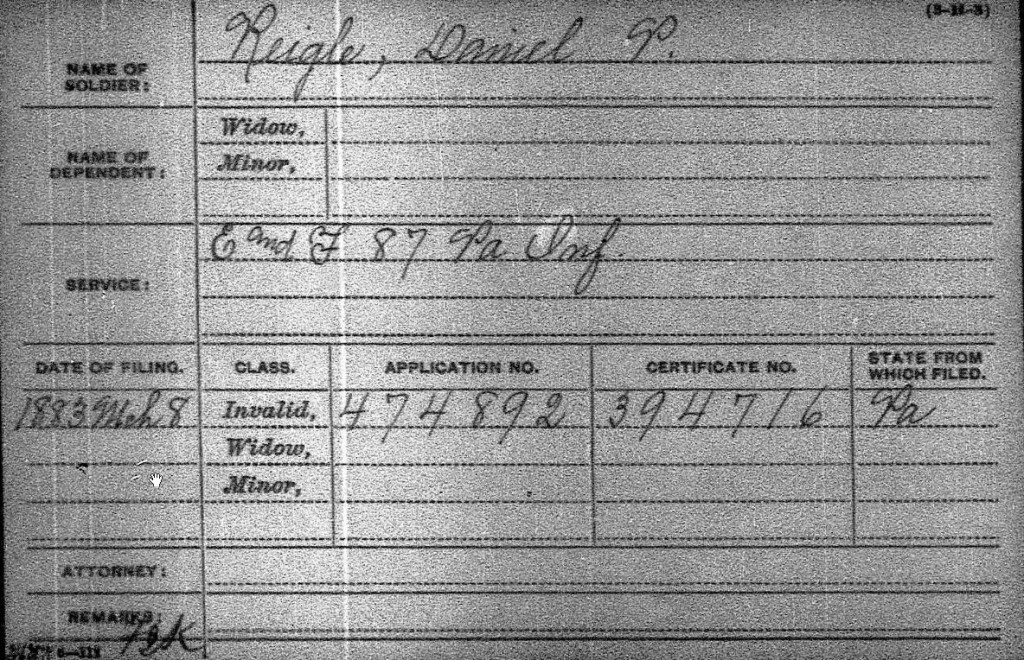 (3-11-3)
NAME OF SOLDIER: Reigle, Daniel P.
NAME OF DEPENDENT: Widow,
Minor,
SERVICE: E and F 87 Pa Inf.
DATE OF FILING. CLASS. APPLICATION NO. CERTIFICATE NO. STATE FROM WHICH FILED.
1883 Mch 8 Invalid, 474892 394716 Pa
Widow,
Minor,
ATTORNEY:
REMARKS: